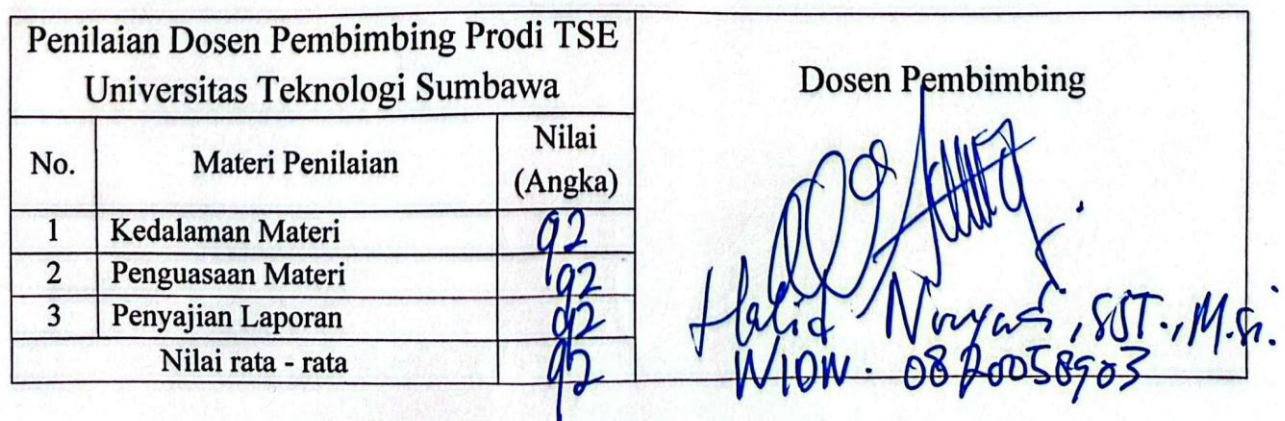 Penilaian Dosen Pembimbing Prodi TSE
Universitas Teknologi Sumbawa
No. Materi Penilaian Nilai (Angka)
1 Kedalaman Materi 92
2 Penguasaan Materi 92
3 Penyajian Laporan 92
Nilai rata - rata 92
Dosen Pembimbing
Halid , SST., M.Si.
NIDN. 0820058903